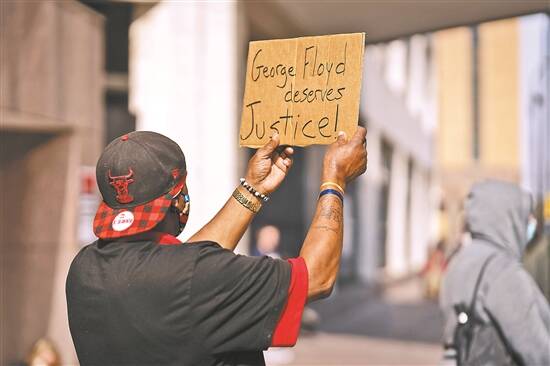 George Floyd
deserves
Justice!